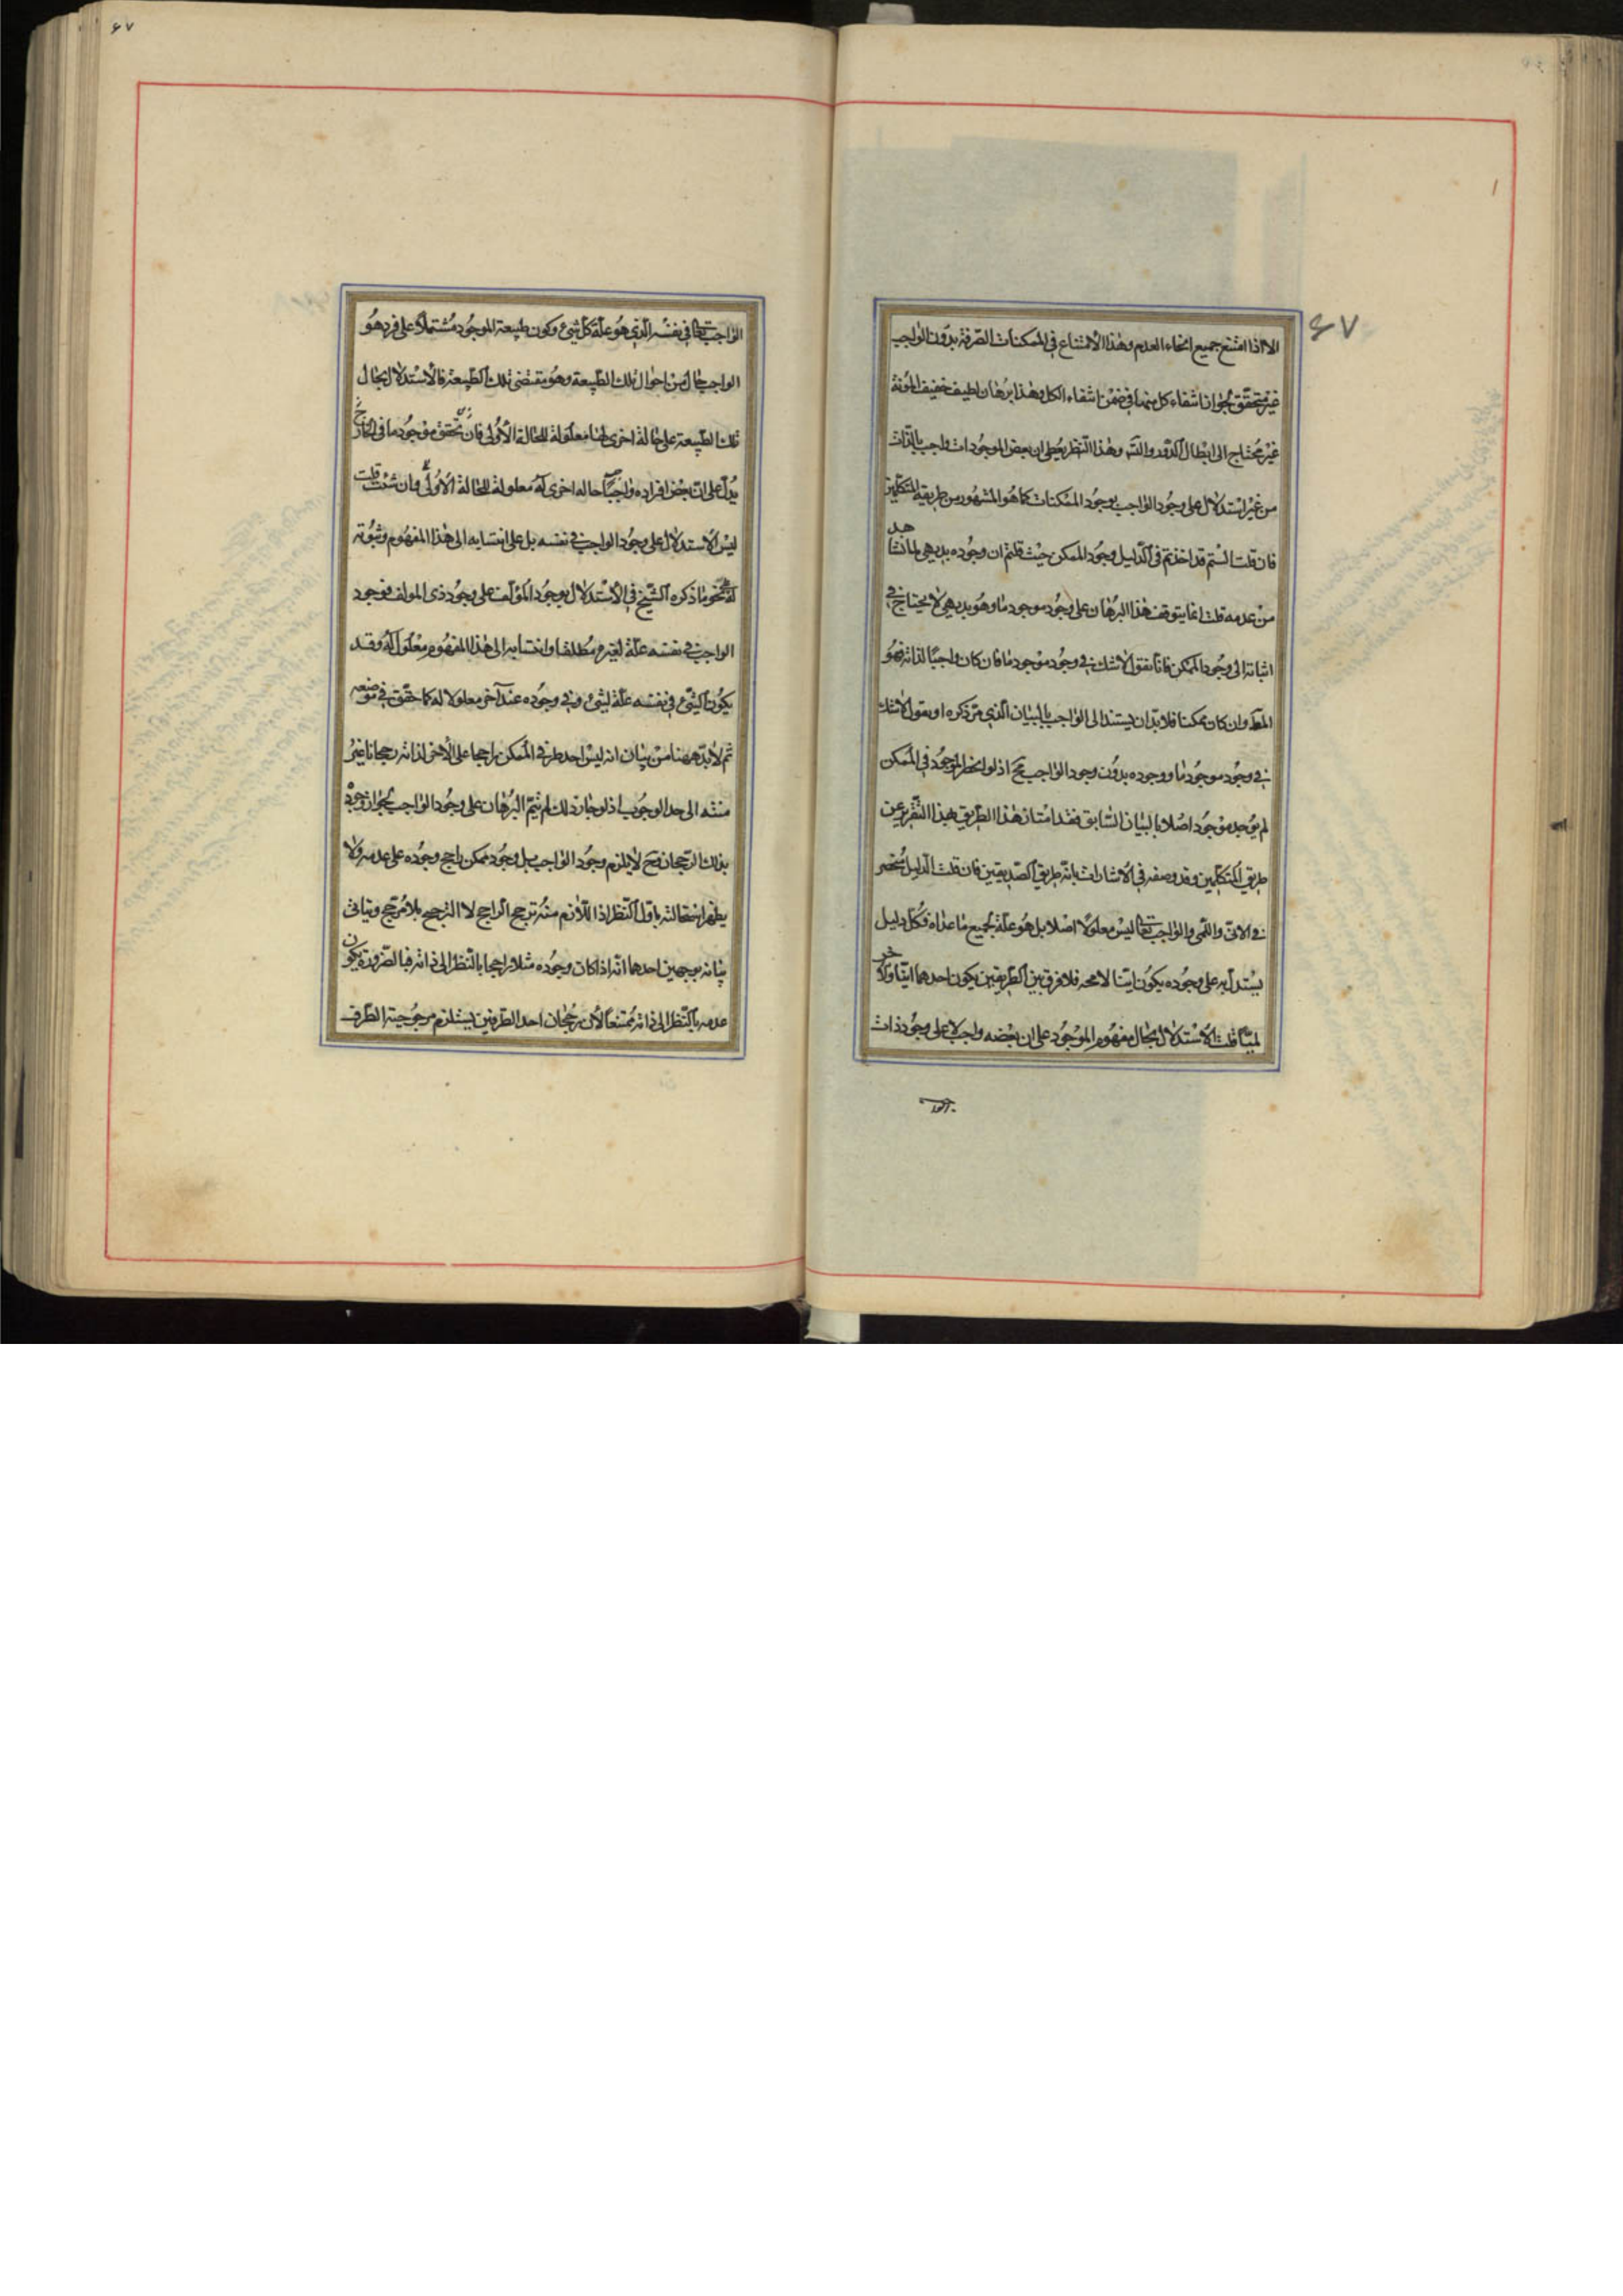 ۶۷
الا اذا امتنع جميع انحاء العدم وهذا الامتناع فى الممكنات الصرفة بدون الواجب
غير متحقق لجواز انتفاء كل منها فى ضمن انتفاء الكل وهذا برهان لطيف خفيف المؤنة
غير محتاج الى ابطال الدور والتس وهذا النظر يعطى ان بعض الموجودات واجب بالذات
من غير استدلال على وجود الواجب بوجود الممكنات كما هو المشهور من طريقة المتكلمين
فان قلت الستم قد اخذتم فى الدليل وجود الممكن حيث قلتم ان وجوده بديهى لما نشاهد
من عدمه قلت انما يتوقف هذا البرهان على وجود موجود ما وهو بديهى لا يحتاج فى
اثباته الى وجود الممكن فانا نقول لا شك فى وجود موجود ما فان كان واجبا لذاته فهو
المط وان كان ممكنا فلا بد ان يستند الى الواجب بالبيان الذى مر ذكره او يقول لا شك
فى وجود موجود ما ووجوده بدون وجود الواجب مح اذ لو انحصر الموجود فى الممكن
لم يوجد موجود اصلا بالبيان السابق فقد امتاز هذا الطريق بهذا التقرير عن
طريق المتكلمين وقد وصفه فى الاشارات بانه طريق الصديقين فان قلت الدليل منحصر
فى الانى واللمى والواجب تعالى ليس معلولا اصلا بل هو علة لجميع ما عداه فكل دليل
يستدل به على وجوده يكون انيا لا محه فلا فرق بين الطريقين يكون احدهما انيا والآخر
لميا قلت الاستدلال بحال مفهوم الموجود على ان بعضه واجب لا على وجود ذات
الوا
۶۷
الواجب تعالى فى نفسه الذى هو علة كل شىء وكون طبيعة الموجود مشتملة على فرد هو
الواجب حال من احوال تلك الطبيعة وهو مقتضى تلك الطبيعة فالاستدلال بحال
تلك الطبيعة على حالة اخرى لها معلولة للحالة الاولى فان تحقق موجود ما فى الخارج
يدل على ان بعض افراده واجبا حاله اخرى له معلولة للحالة الاولى وان شئت قلت
ليس الاستدلال على وجود الواجب فى نفسه بل على انتسابه الى هذا المفهوم وثبوته
له نحو ما ذكره الشيخ فى الاستدلال بوجود المؤلف على وجود ذى المولف فوجود
الواجب فى نفسه علة لغيره مطلقا وانتسابه الى هذا المفهوم معلول له وقد
يكون الشىء فى نفسه علة لشىء وفى وجوده عند آخر معلولا له كما حقق فى موضعه
ثم لا بد ههنا من بيان انه ليس احد طرفى الممكن راجحا على الاخر لذاته رجحانا غير
منته الى حد الوجوب اذ لو جاز ذلك لم يتم البرهان على وجود الواجب لجواز وجود
بذلك الرجحان فح لا يلزم وجود الواجب بل وجود ممكن راجح وجوده على عدمه ولا
يظهر استحالته باول النظر اذ اللازم منه ترجح الراجح لا الترجح بلا مرجح ويتاتى
بيانه بوجهين احدهما انه اذا كان وجوده مثلا راجحا بالنظر الى ذاته فبالضرورة يكون
عدمه بالنظر الى ذاته ممتنعا لان رجحان احد الطرفين يستلزم مرجوحية الطرف